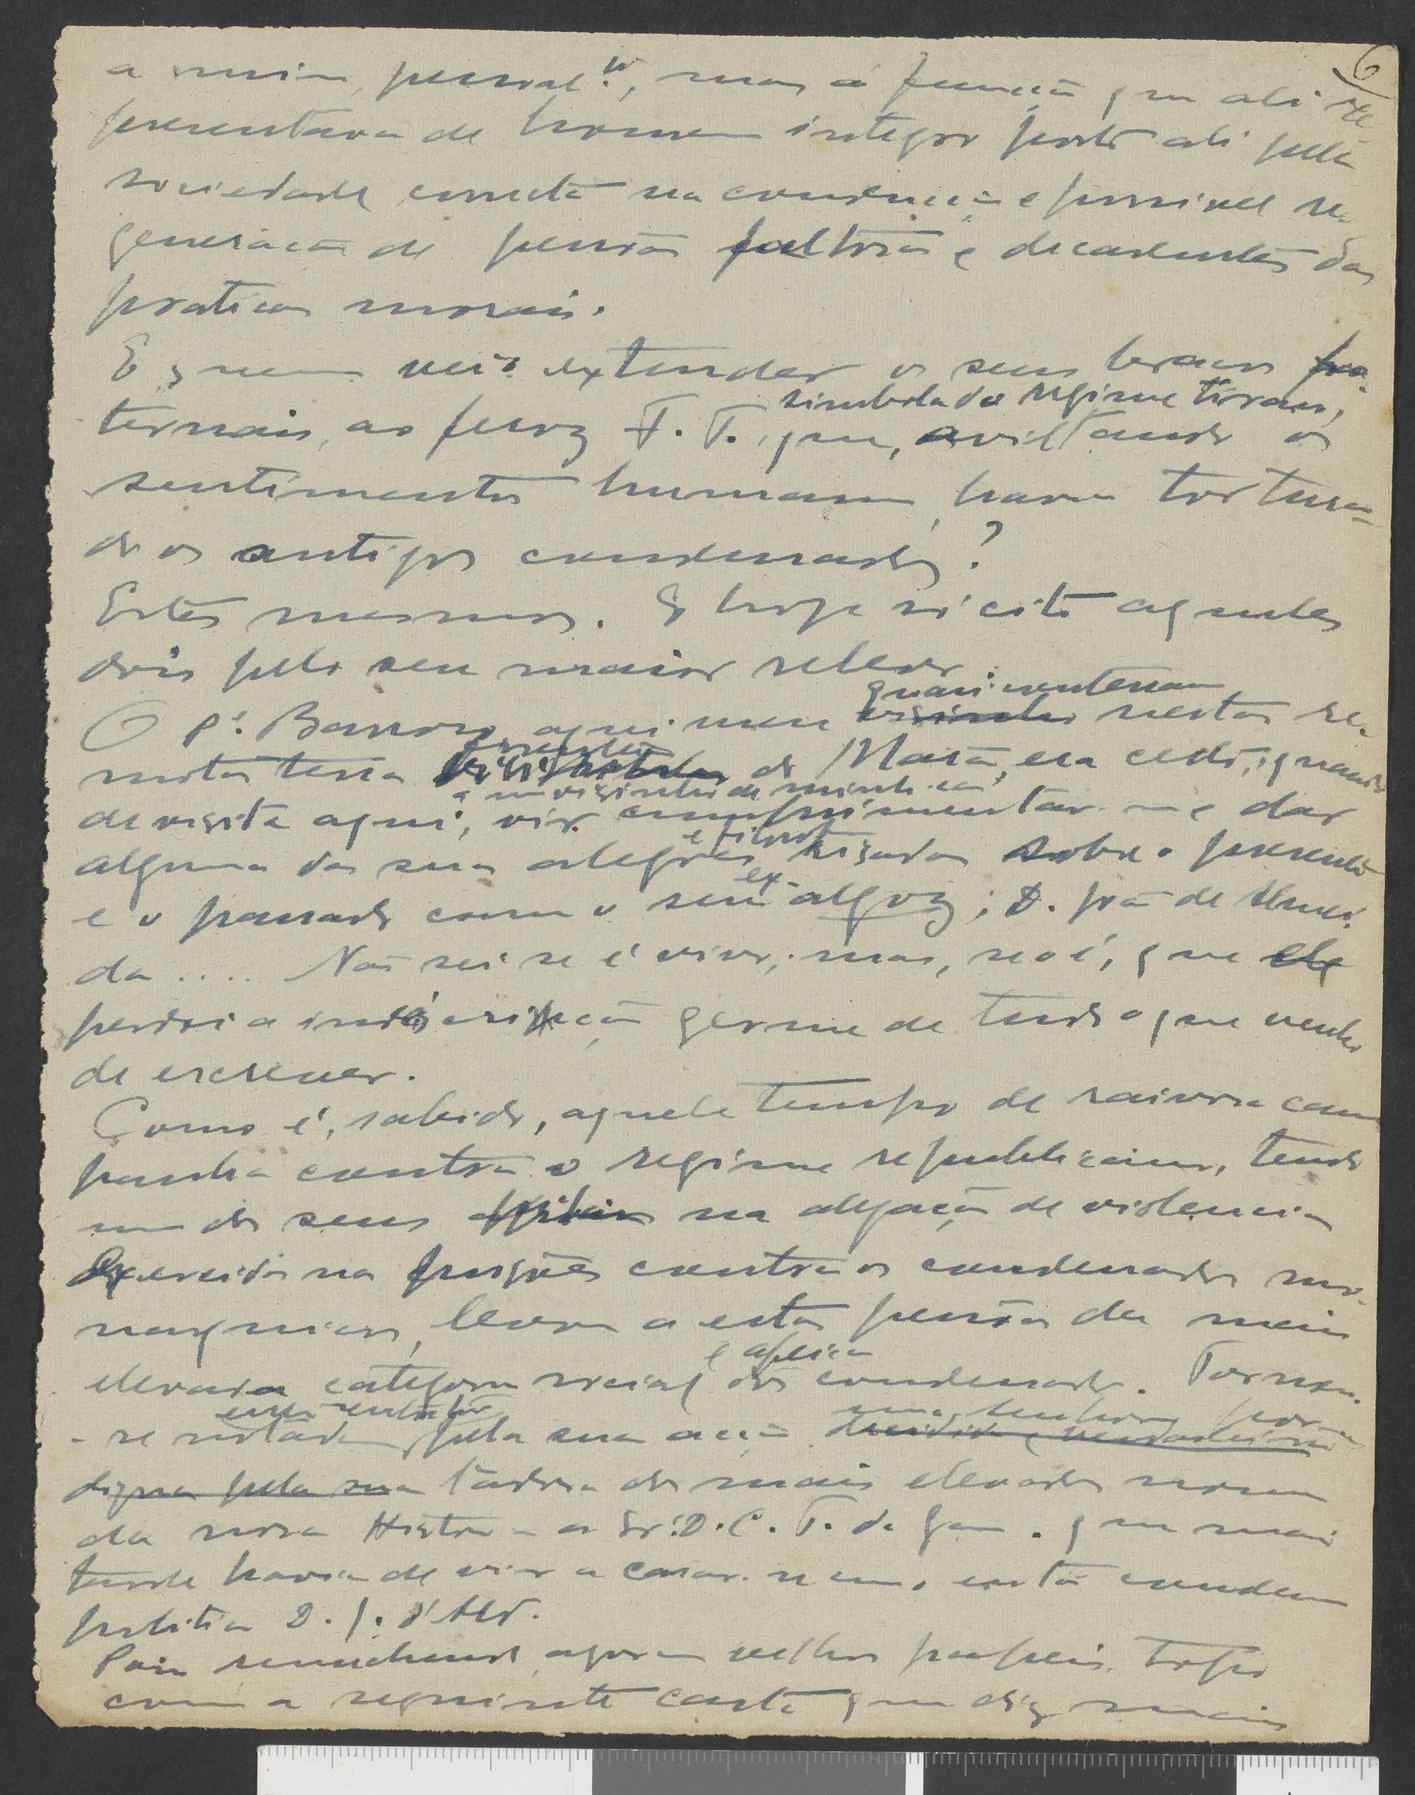 6
a mim, pessoalm.te, mas á função que ali re
presentava de homem integro posto ali pela
sociedade correcta na condução e possivel re-
generação de pessoas e decadentes das
praticas morais.
E quem veio extender os seus braços fra-
simbolo do regime tirano,
ternais, ao feroz F. T. que, aviltando os
sentimentos humanos, havia tortura-
do os antigos condenados?
Estes mesmos. E hoje só cito aqueles
dois pelo seu maior relevo.
quasi conterraneo
O P.e Barroso, aqui meu visinho nestas re-
motas terras da Maia, era certo, quando
de visita aqui, vir cumprimentar-me e dar
algumas das suas alegres risadas sobre o presente
ex-
e o passado com o seu algoz; D. João de Almei-
da .... Não sei se é vivo; mas, se o é, que ele
perdoi a germe de tudo o que venho
de escrever.
Como é sabido, aquele tempo de raivosa cam
panha contra o regime republicano, tendo
um dos seus na alegação de violencias
exercidas nas prisões contra os condenados mo-
narquicos, levou a estas pessoas da mais
elevada categoria social dos condenados. Tornou-
-se notada pela sua acção
digna pela sua de mais elevados nomes
da nossa Historia a Sr.a D. C. T. da Gama que mais
tarde havia de vir a casar com o então condenado
politico D. J. d'Alm.
Pois remechendo agora velhos papeis, topo
com a seguinte carta que diz mais